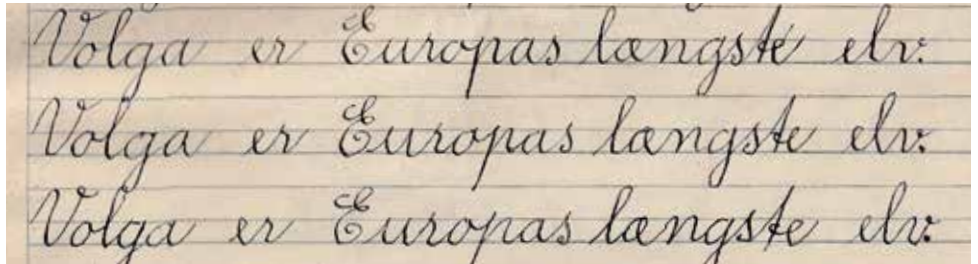 Volga er Europas længste elv.
Volga er Europas længste elv.
Volga er Europas længste elv.